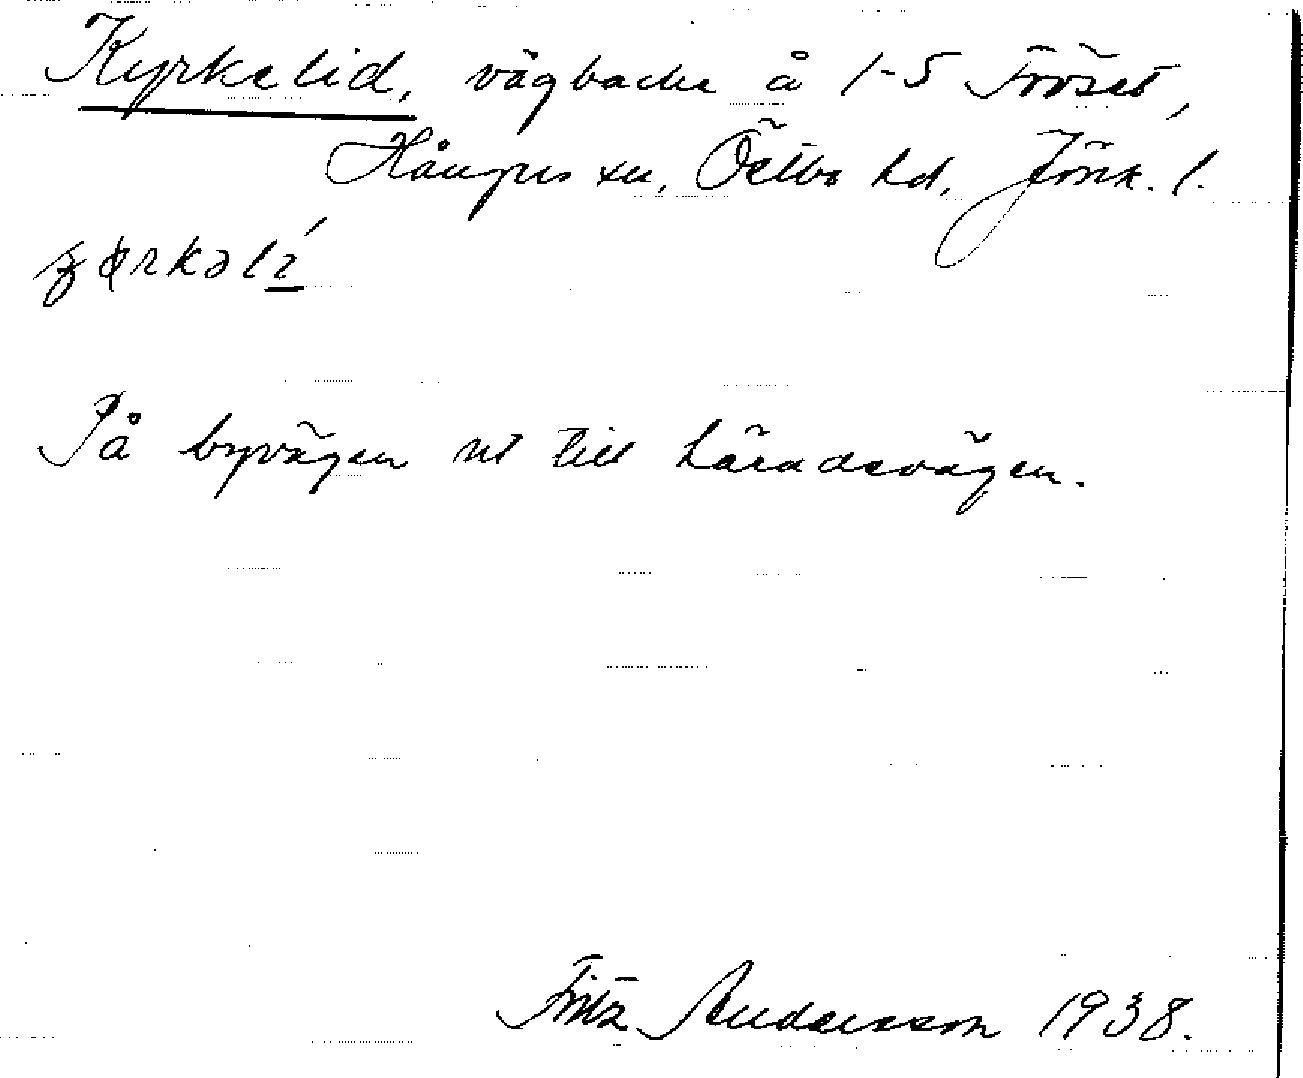 Kyrkelid, vägbacke å 1-5 Fröset,
Hånger sn, Östbo hd, Jönk. l.
På byvägen ut till häradsvägen.
Fritz Andersson 1938.